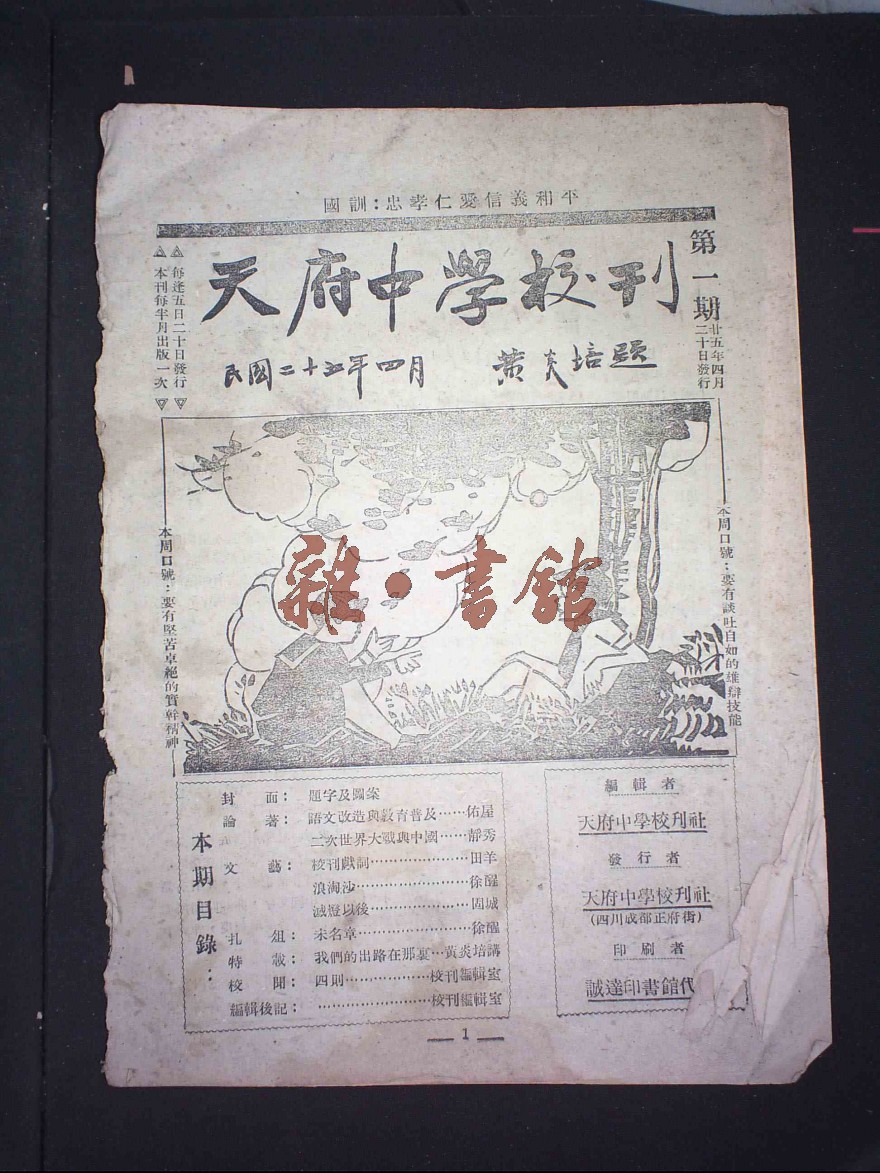 國訓：忠孝仁愛信義和平
第一期
廿五年四月
二十日發行
天府中學校刊
民國二十五年四月
黃炎培題
每逢五日二十日發行
本刊每半月出版一次
本周口號：要有談吐自如的雄辯技能
本周口號：要有堅苦卓絕的實幹精神
雜·書館
本期目錄：
封面：題字及圖案
論著：語文改造與教育普及……佑屋
二次世界大戰與中國……靜秀
文藝：校刊獻詞…………………田羊
浪淘沙…………………徐醒
滅燈以後………………圄城
扎俎：未名章…………………徐醒
特載：我們的出路在那裏…黃炎培講
校聞：四則……………校刊編輯室
編輯後記：………………校刊編輯室
編輯者
天府中學校刊社
發行者
天府中學校刊社
(四川成都正府街)
印刷者
誠達印書館代
— 1 —